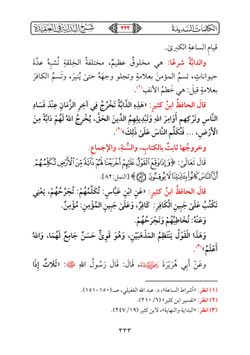 الكلمات السديدة
٢٣٣
شرح البداية في العقيدة
قيام الساعةِ الكبرىٰ.
والدابَّةُ شرعًا: هي مخلوقٌ عظيمٌ، مختلفةُ الخِلقةِ تُشبِهُ عدَّةَ
حيواناتٍ، تسِمُ المؤمنَ بعلامةٍ وتجلو وجهَهُ حتىٰ يُنيرَ، وتَسِمُ الكافرَ
بعلامةٍ قيلَ: هي خَطمُ الأنفِ(١).
قالَ الحافظُ ابنُ كثيرٍ: «هَذِهِ الدَّابَّةُ تَخْرُجُ فِي آخِرِ الزَّمَانِ عِنْدَ فَسَادِ
النَّاسِ وتَرْكِهِم أَوَامِرَ اللهِ وتَبْدِيلِهِمُ الدِّينَ الحَقَّ، يُخْرِجُ اللهُ لَهُمْ دَابَّةً مِنَ
الأَرْضِ، ... فَتُكَلِّمُ النَّاسَ عَلَىٰ ذَلِكَ»(٢).
وخروجُها ثابتٌ بالكتابِ، والسنَّةِ، والإجماعِ.
قالَ تعالَىٰ: ﴿وَإِذَا وَقَعَ ٱلْقَوْلُ عَلَيْهِمْ أَخْرَجْنَا لَهُمْ دَآبَّةً مِّنَ ٱلْأَرْضِ تُكَلِّمُهُمْ
أَنَّ ٱلنَّاسَ كَانُوا۟ بِـَٔايَـٰتِنَا لَا يُوقِنُونَ﴾ [النمل: ٨٢].
قالَ الحافظُ ابنُ كثيرٍ: «عَنِ ابْنِ عَبَّاسٍ: تُكَلِّمُهُمْ: تُجَرِّحُهُمْ، يَعْنِي
تَكْتُبُ عَلَىٰ جَبِينِ الْكَافِرِ: كَافِرٌ، وَعَلَىٰ جَبِينِ الْمُؤْمِنِ: مُؤْمِنٌ.
وَعَنْهُ: تُخَاطِبُهُمْ وَتَجْرَحُهُمْ.
وَهَذَا الْقَوْلُ يَنْتَظِمُ الْمَذْهَبَيْنِ، وَهُوَ قَوِيٌّ حَسَنٌ جَامِعٌ لَهُمَا، وَاللهُ
أَعْلَمُ»(٣).
وعَنْ أَبِي هُرَيْرَةَ رَضِيَ اللهُ عَنْهُ، قَالَ: قَالَ رَسُولُ اللهِ ﷺ: «ثَلَاثٌ إِذَا
(١) انظر: «أشراط الساعة»، د. عبد الله الغفيلي، صـ (١٥٠-١٥١).
(٢) انظر: «تفسير ابن كثير» (٦/ ٢١٠).
(٣) انظر: «البداية والنهاية»، لابن كثير (١٩/ ٢٤٧).
٢٣٣